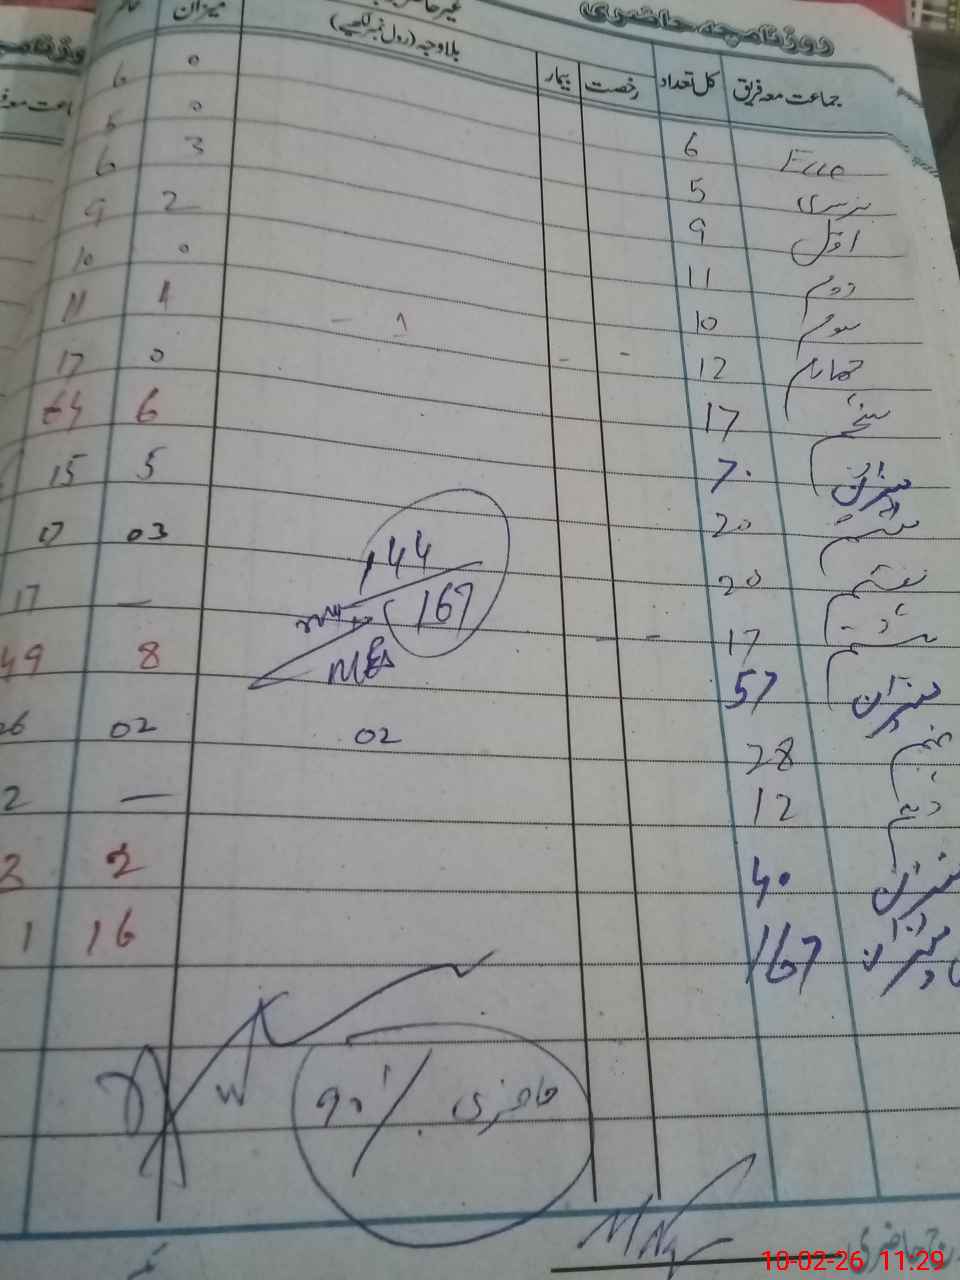 روزنامچہ حاضری
جماعت معہ فریق کل تعداد رخصت بیمار بلاوجہ (رول نمبر لکھیے) میزان
Ecce 6 0 6
نرسری 5 0 5
اوّل 9 3 6
دوم 11 2 9
سوم 10 0 10
چہارم 12 - - 1 - 1 11
پنجم 17 0 17
میزان 70 6 64
ششم 20 5 15
ہفتم 20 03 17
ہشتم 17 - - — 17
میزان 57 8 49
نہم 28 02 02 26
دہم 12 — 2
میزان 40 2
میزان 167 16 1
144
167
MEA
حاضری 90%
حاضری
10-02-26 11:29